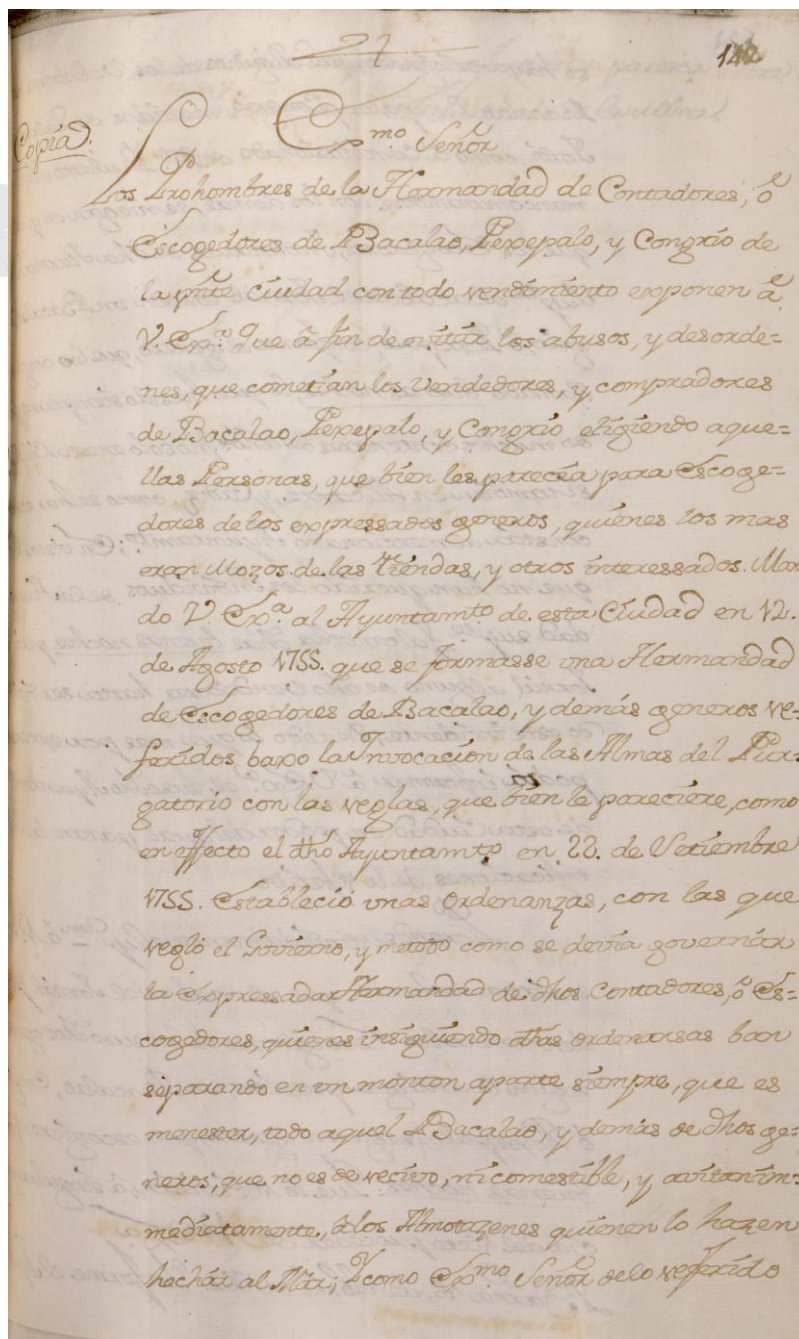 142
Copia.
Exmo. Señor
Los Prohombres de la Hermandad de Contadores, ò
Escogedores de Bacalao, Pexepalo, y Congrio de
la pnte Ciudad con todo rendimiento exponen à
V. Exa. Que â fin de evitar los abusos, y desorde=
nes, que cometian los Vendedores, y compradores
de Bacalao, Pexepalo, y Congrio eligiendo aque=
llas Personas, que bien les parecia para Escoge=
dores de los expressados generos, quienes los mas
eran Mozos de las tiendas, y otros interessados. Man
do V. Exa. al Ayuntamto. de esta Ciudad en 12.
de Agosto 1755. que se formasse una Hermandad
de Escogedores de Bacalao, y demás generos re=
feridos baxo la Invocacion de las Almas del Pur=
gatorio con las reglas, que bien le pareciere, como
en effecto el dho Ayuntamto. en 22. de Setiembre
1755. Estableció unas Ordenanzas, con las que
regló el Govierno, y metodo como se devia governár
la Expressada Hermandad de dhos Contadores, ò Es=
cogedores, quienes insiguiendo dhas ordenansas ban
separando en un monton aparte siempre, que es
menester, todo aquel Bacalao, y demás de dhos ge=
neros, que no es de recivo, ni comestible, y avitan im=
mediatamente, â los Almotazenes quienen lo hazen
hechár al Mar; Y como Exmo Señor de lo refferido